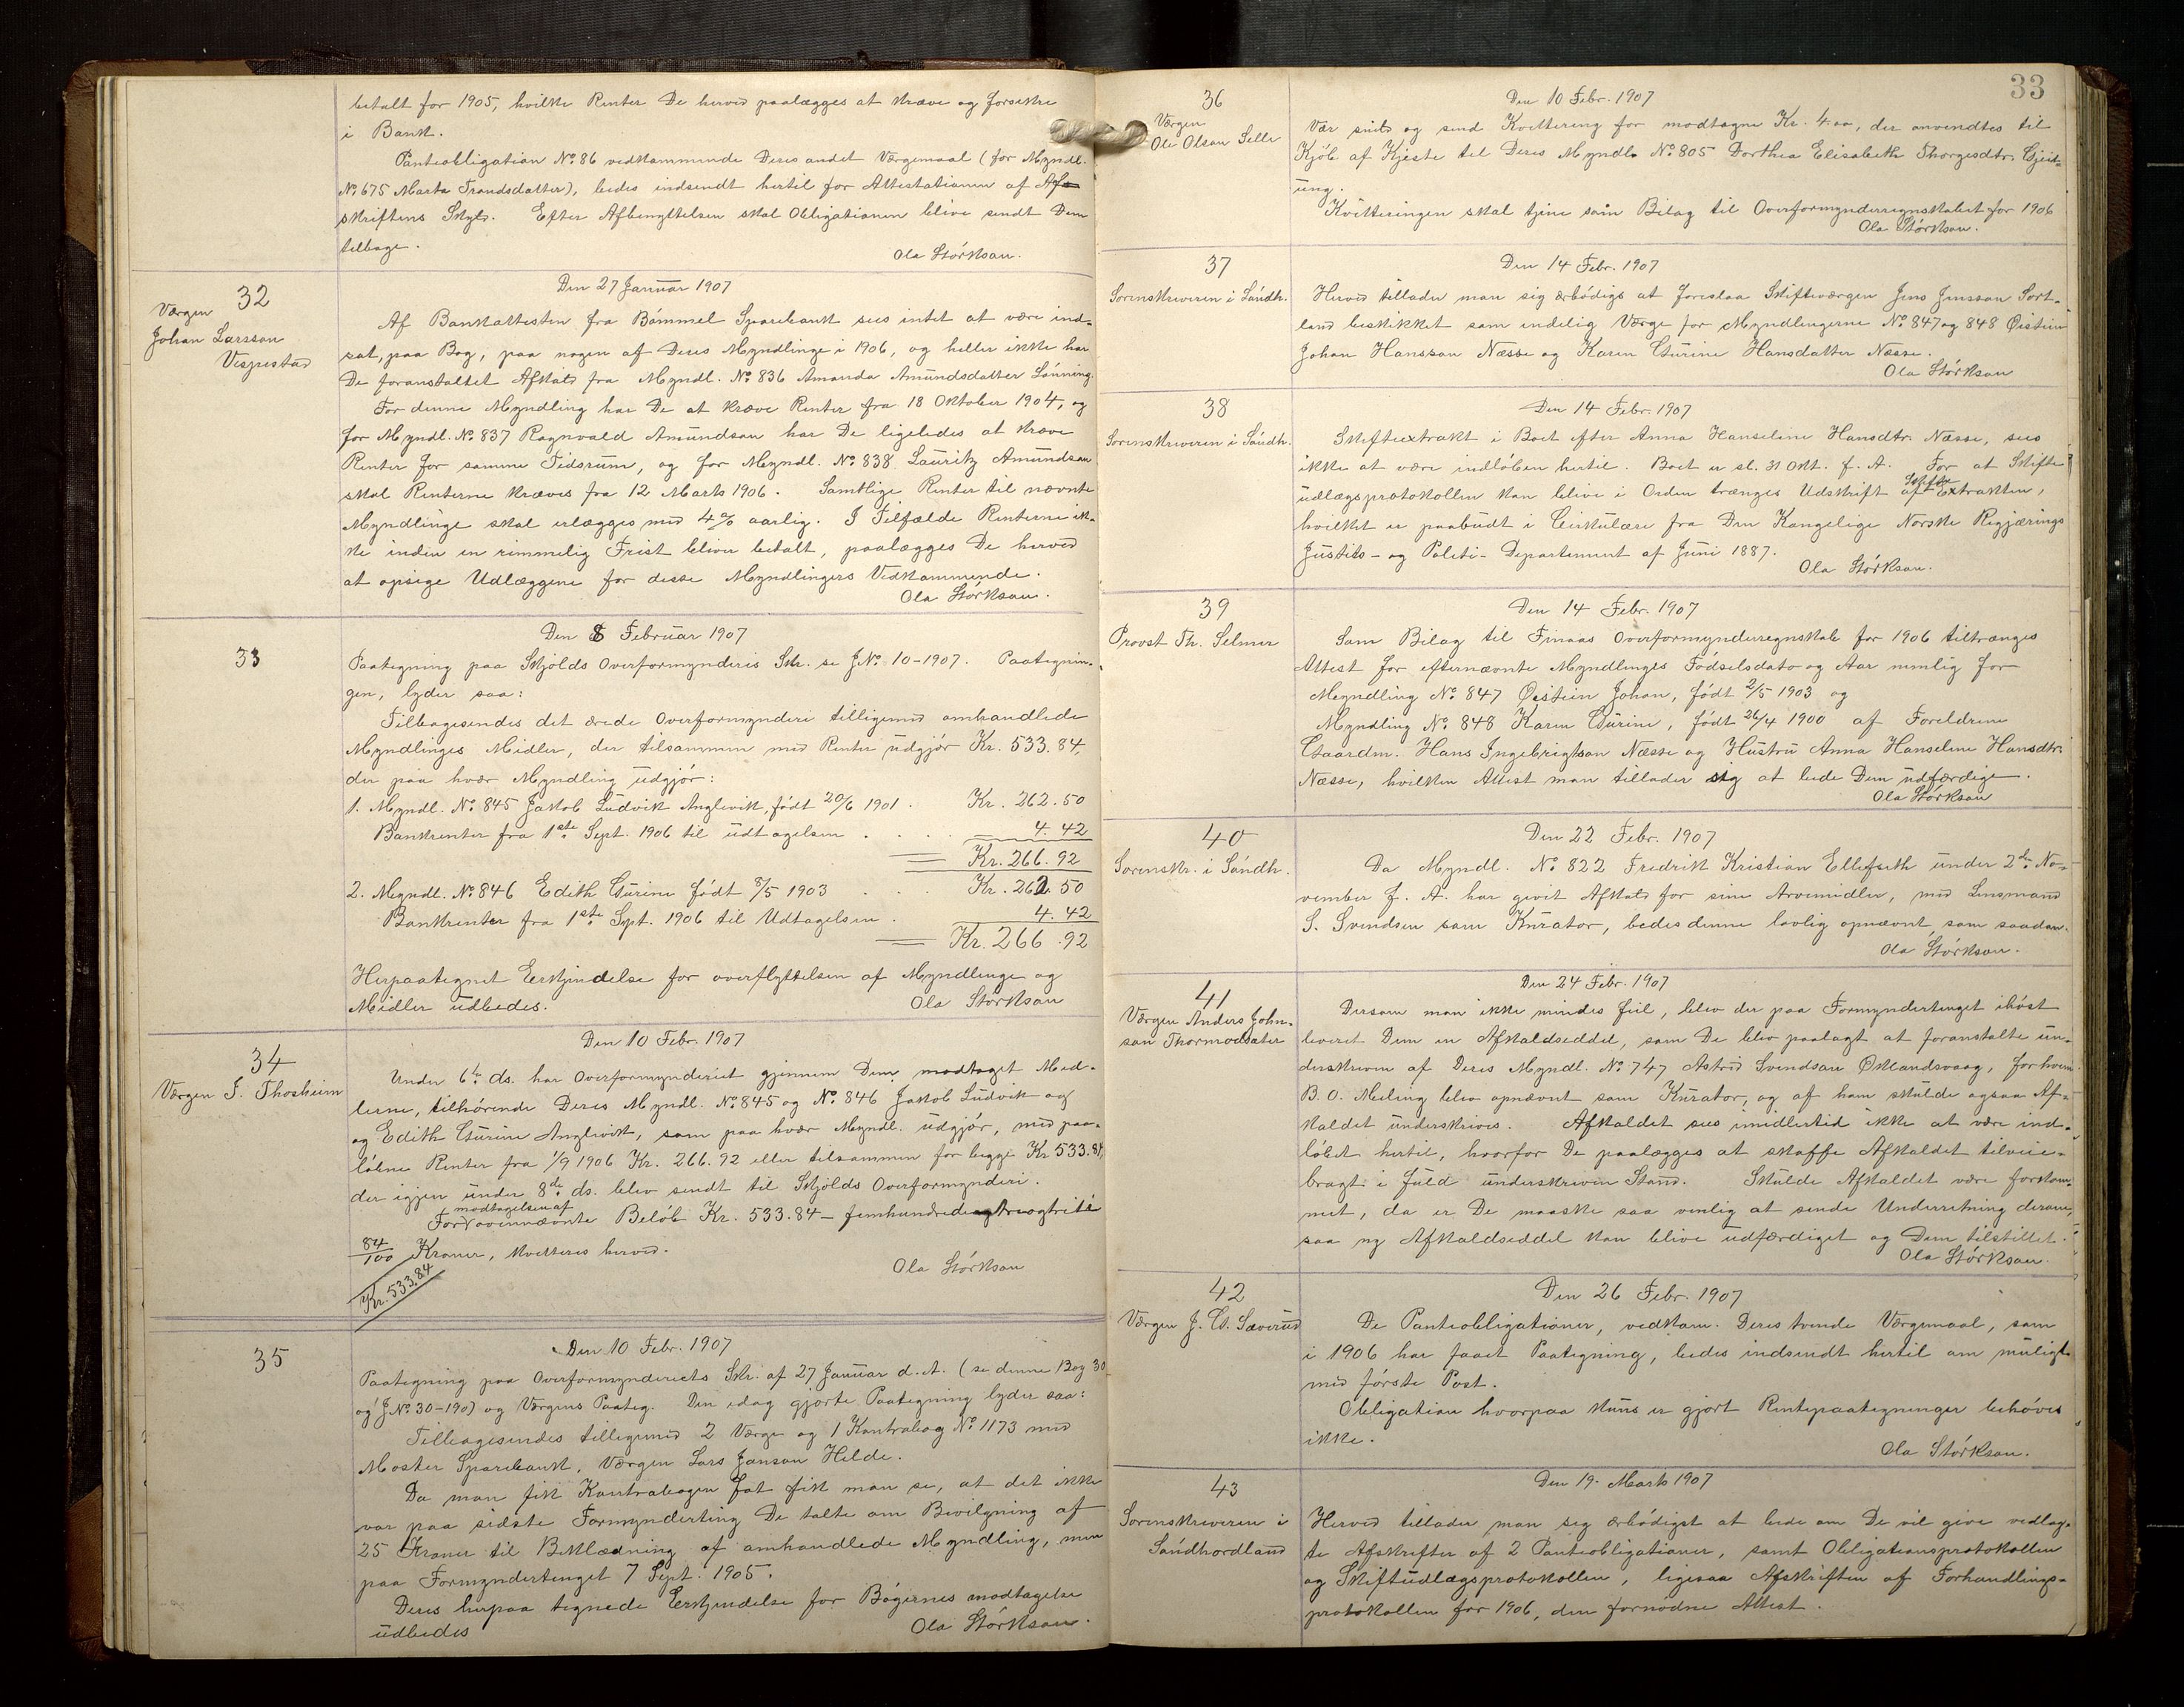 betalt for 1905, hvilke Renter De herved paalægges at kræve og forsikre
i Bank.
Panteobligation No. 86 vedkommende Deres andet Værgemaal (for Myndl.
No. 675 Marta Trondsdatter), bedes indsendt hertil for Attestationen af Af-
skriftens Skyld. Efter Afbenyttelsen skal Obligationen blive sendt Dem
tilbage.
Ola Størkson.
32
Værgen
Johan Larsson
Vespestad
Den 27 Januar 1907
Af Bankattesten fra Bømmel Sparebank sees intet at være ind-
sat, paa Bog, paa nogen af Deres Myndlinge i 1906, og heller ikke har
De foranstaltet Afkald fra Myndl. No. 836 Amanda Amundsdatter Lønning.
For denne Myndling har De at kræve Renter fra 18 Oktober 1904, og
for Myndl. No. 837 Ragnvald Amundson har De ligeledes at kræve
Renter for samme Tidsrum, og for Myndl. No. 838 Lauritz Amundson
skal Renterne kræves fra 12 Marts 1906. Samtlige Renter til nævnte
Myndlinge skal erlægges med 4% aarlig. I Tilfælde Renterne ik-
ke inden en rimmelig Frist bliver betalt, paalægges De herved
at opsige Udlæggene for disse Myndlingers Vedkommende.
Ola Størkson.
33
Den 8 Februar 1907
Paategning paa Skjolds Overformynderis Skr. se J.No. 10-1907. Paategnin-
gen, lyder saa:
Tilbagesendes det ærede Overformynderi tilligemed omhandlede
Myndlinges Midler, der tilsammen med Renter udgjør Kr. 533.84.
der paa hvær Myndling udgjør:
1. Myndl. No. 845 Jakob Ludvik Anglevik, født 20/6 1901. Kr. 262.50
Bankrenter fra 1ste Sept. 1906 til udtagelsen . . . 4.42
Kr. 266.92
2. Myndl. No. 846 Edith Gurine født 3/5 1903 . . Kr. 262.50
Bankrenter fra 1ste Sept. 1906 til Udtagelsen . 4.42
Kr. 266.92
Herpaategnet Erkjendelse for overflyttelsen af Myndlinge og
Midler udbedes. Ola Størkson
34
Værgen S. Thosheim
Den 10 Febr. 1907
Under 6te ds. har Overformynderiet gjennem Dem modtaget Mid-
lerne, tilhørende Deres Myndl. No. 845 og No. 846 Jakob Ludvik og
og Edith Gurine Anglevik, som paa hvær Myndl. udgjør, med paa-
løbne Renter fra 1/9 1906 Kr. 266.92 eller tilsammen for begge Kr 533.84,
der igjen under 8de ds. blev sendt til Skjolds Overformynderi.
modtagelsen af
For ovennævnte Beløb Kr. 533.84 – femhundredeogtreogtriti
84/100 Kroner, kvitteres herved.
Ola Størkson
Kr. 533.84
35
Den 10 Febr. 1907
Paategning paa Overformynderiets Skr. af 27 Januar d. A. (se denne Bog 30
og J.No. 30-190) og Værgens Paateg. Den idag gjorte Paategning lyder saa:
Tilbagesendes tilligemed 2 Værge og 1 Kontrabog No. 1173 med
Moster Sparebank, Værgen Lars Janson Helde.
Da man fik Kontrabogen fat fik man se, at det ikke
var paa sidste Formynderting De talte om Bevilgning af
25 Kroner til Beklædning af omhandlede Myndling, men
paa Formyndertinget 7 Sept. 1905.
Deres herpaa tegnede Erkjendelse for Bøgernes modtagelse
udbedes Ola Størkson.
33
36
Værgen
Ole Olson Selle
Den 10 Febr. 1907
Vær snild og send Kvittering for modtagne Kr. 4.00, der anvendtes til
Kjøb af Kjeste til Deres Myndl. No. 805 Dorthea Elisabeth Thorgesdtr.
ung.
Kvitteringen skal tjene som Bilag til Overformynderregnskabet for 1906
Ola Størkson.
37
Sorenskriveren i Søndh.
Den 14 Febr. 1907
Herved tillader man sig ærbødigs at foreslaa Skifteværgen Jens Jensson Sort-
land beskikket som endelig Værge for Myndlingerne No. 847 og 848 Øistein
Johan Hansson Næsse og Karen Gurine Hansdatter Næsse.
Ola Størkson
38
Sorenskriveren i Søndh.
Den 14 Febr. 1907
Skifteextrakt i Boet efter Anna Hanseline Hansdtr. Næsse, sees
ikke at være indløben hertil. Boet er sl. 31 Okt. f. A. For at Skifte
udlægsprotokollen kan blive i Orden trænges Udskrift af Skifte Extrakten,
hvilket er paabudt i Cirkulære fra Den Kongelige Norske Regjærings
Justits- og Politi-Departement af Juni 1887.
Ola Størkson.
39
Provst Th. Selmer
Den 14 Febr. 1907
Som Bilag til Finaas Overformynderregnskab for 1906 tiltrænges
Attest for efternævnte Myndlinges Fødselsdato og Aar nemlig for
Myndling No. 847 Øistein Johan, født 2/5 1903 og
Myndling No. 848 Karen Gurine, født 26/4 1900 af Foreldrene
Gaardm. Hans Ingebrigtson Næsse og Hustru Anna Hanseline Hansdtr.
Næsse, hvilken Attest man tillader sig at bede Dem udfærdige.
Ola Størkson
40
Sorenskr. i Søndh.
Den 22 Febr. 1907
Da Myndl. No. 822 Fredrik Kristian Ellefseth under 2den No-
vember f. A. har givet Afkald for sine Arvemidler, med Lensmand
S. Svendsen som Kurator, bedes denne lovlig opnævnt, som saadan.
Ola Størkson.
41
Værgen Anders John-
son Thormodsæter
Den 24 Febr. 1907
Dersom man ikke mindes feil, blev der paa Formyndertinget ihøst
leveret Dem en Afkaldseddel, som De blev paalagt at foranstalte un-
derskreven af Deres Myndl. No. 747 Astrid Svendson Øklandsvaag, for hvem
B. O. Meling blev opnævnt som Kurator, og af ham skulde ogsaa Af-
kaldet underskrives. Afkaldet sees imidlertid ikke at være ind-
løbet hertil, hvorfor De paalægges at skaffe Afkaldet tilveie-
bragt i fuld underskreven Stand. Skulde Afkaldet være forkom-
met, da er De maaske saa venlig at sende Underretning derom,
saa ny Afkaldseddel kan blive udfærdiget og Dem tilstillet.
Ola Størkson.
42
Værgen J. G. Sæverud
Den 26 Febr. 1907
De Panteobligationer, vedkom. Deres tvende Værgemaal, som
i 1906 har faaet Paategning, bedes indsendt hertil om muligt
med første Post.
Obligation hvorpaa kuns er gjort Rentepaategninger behøves
ikke.
Ola Størkson.
43
Sorenskriveren i
Søndhordland
Den 19. Marts 1907
Herved tillader man sig ærbødigst at bede om De vil give vedlag-
te Afskrifter af 2 Panteobligationer, samt Obligationsprotokollen
og Skifteudlægsprotokollen, ligesaa Afskriften af Forhandlings-
protokollen for 1906, den fornødne Attest.